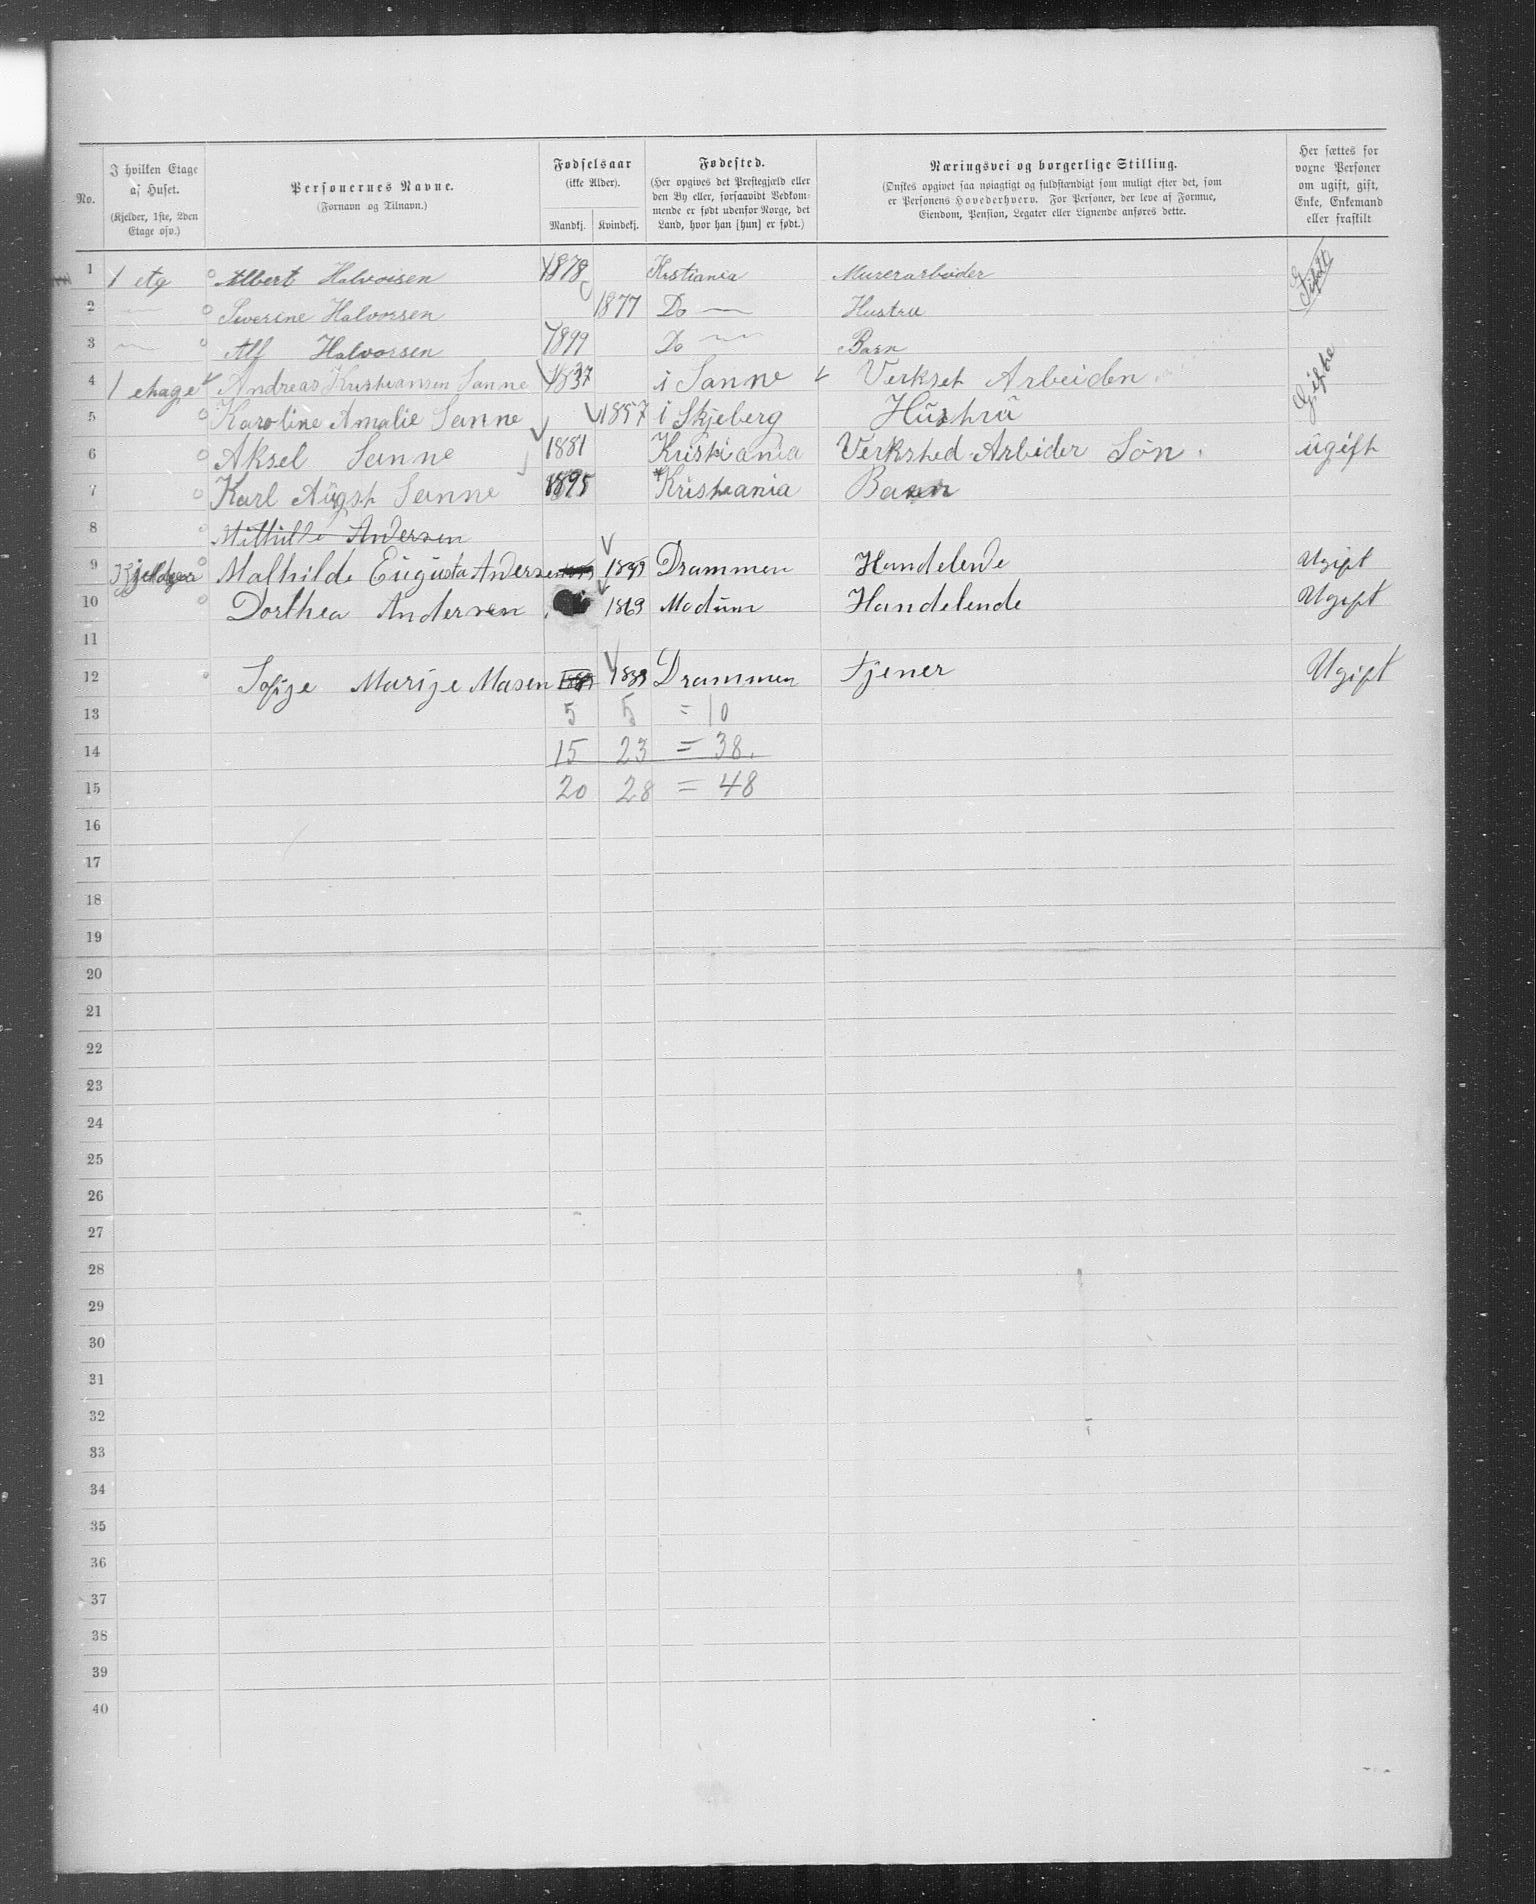 No. | I hvilken Etage af Huset. (Kjelder, 1ste, 2den Etage osv.) | Personernes Navne. (Fornavn og Tilnavn.) | Fødselsaar (ikke Alder). Mandkj. | Kvindekj. | Fødested. (Her opgives det Prestegjæld eller den By eller, forsaavidt Vedkommende er født udenfor Norge, det Land, hvor han [hun] er født.) | Næringsvei og borgerlige Stilling. (Ønskes opgivet saa nøiagtigt og fuldstændigt som muligt efter det, som er Personens Hovederhverv. For Personer, der leve af Formue, Eiendom, Pension, Legater eller Lignende anføres dette. | Her sættes for voxne Personer om ugift, gift, Enke, Enkemand eller fraskilt
1 | 1 etg | Albert Halvorsen | 1878 | | Kristiania | Murerarbeider | Gift
2 | — | Severine Halvorsen | | 1877 | Do — | Hustru
3 | — | Alf Halvorsen | 1899 | | Do — | Barn
4 | 1 etage | Andreas Kristiansen Sanne | 1837 | | i Sanne | Verkset Arbeiden | Gifte
5 | Karoline Amalie Sanne | | 1857 | i Skjeberg | Hüstrü
6 | Aksel Sanne | 1881 | | Kristiania | Verksted Arbeider Sön. | ügift
7 | Karl Aügst Sanne | 1895 | | Kristiania | Barn
8 | Andersen
9 | Mathilde Eügüsta Andersen | | Drammen | Handelende | Ugift
10 | Dorthea Andersen | | 1869 | Modüm | Handelende | Ugift
11
12 | Sofije Marije Masen | | Drammen | Tjener | Ugift
13 | 5 | 5 | = 10
14 | 15 | 23 | = 38.
15 | 20 | 28 | = 48
16
17
18
19
20
21
22
23
24
25
26
27
28
29
30
31
32
33
34
35
36
37
38
39
40